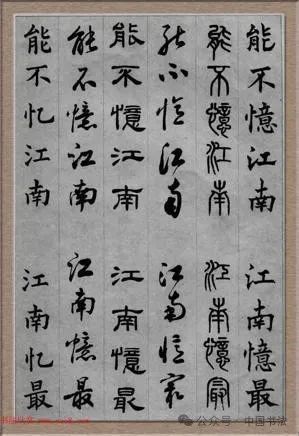 能不憶江南 江南憶最
能不憶江南 江南憶最
能不憶江南 江南憶最
能不憶江南 江南憶最
能不憶江南 江南憶最
能不忆江南 江南忆最
公众号·中国书法